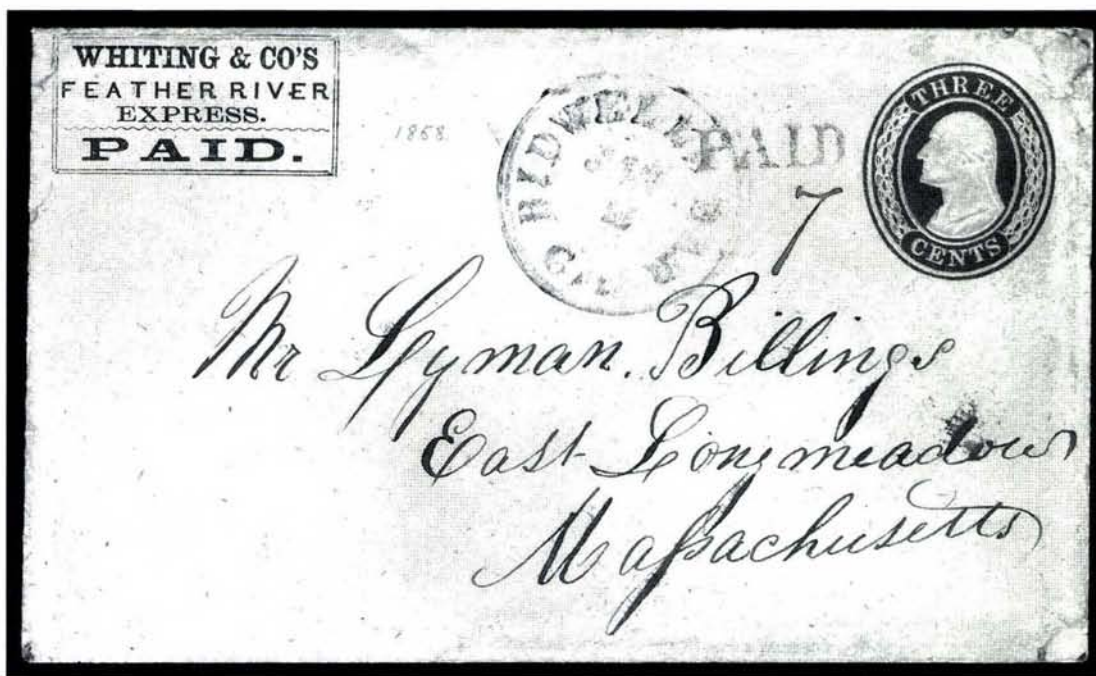 WHITING & CO'S
FEATHER RIVER
EXPRESS.
PAID.
1858.
BIDWELL
CAL
PAID
7
THREE
CENTS
Mr Lyman. Billings
East Longmeadow
Massachusetts